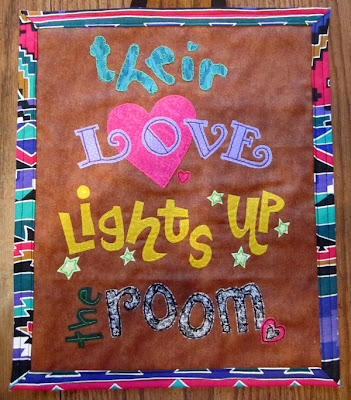 their
LOVE
Lights UP
the room